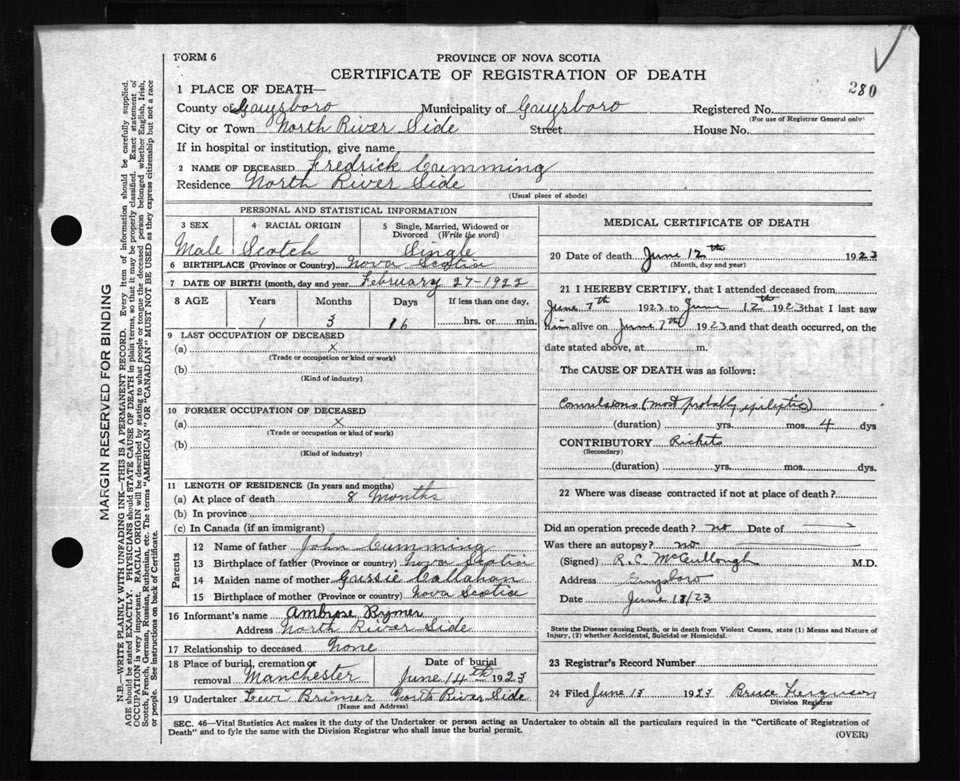 FORM 6
PROVINCE OF NOVA SCOTIA
CERTIFICATE OF REGISTRATION OF DEATH
280
1 PLACE OF DEATH—
County of Guysboro Municipality of Guysboro Registered No.
(For use of Registrar General only)
City or Town North River Side Street House No.
If in hospital or institution, give name
2 NAME OF DECEASED Fredrick Cumming
Residence North River Side
(Usual place of abode)
PERSONAL AND STATISTICAL INFORMATION
3 SEX 4 RACIAL ORIGIN 5 Single, Married, Widowed or Divorced (Write the word)
Male Scotch Single
6 BIRTHPLACE (Province or Country) Nova Scotia
7 DATE OF BIRTH (month, day and year February 27-1922
8 AGE Years Months Days If less than one day,
1 3 16 hrs. or min.
9 LAST OCCUPATION OF DECEASED
(a) x
(Trade or occupation or kind or work)
(b)
(Kind of industry)
10 FORMER OCCUPATION OF DECEASED
(a) x
(Trade or occupation or kind of work)
(b)
(Kind of industry)
11 LENGTH OF RESIDENCE (In years and months)
(a) At place of death 8 Months
(b) In province
(c) In Canada (if an immigrant)
Parents
12 Name of father John Cumming
13 Birthplace of father (Province or country) Nova Scotia
14 Maiden name of mother Gussie Callahan
15 Birthplace of mother (Province or country) Nova Scotia
16 Informant's name Ambrose Rymer
Address North River Side
17 Relationship to deceased None
18 Place of burial, cremation or removal Manchester Date of burial June 14th 1923
19 Undertaker Levi Brimer North River Side
(Name and Address)
MEDICAL CERTIFICATE OF DEATH
20 Date of death June 12th 1923
(Month, day and year)
21 I HEREBY CERTIFY, that I attended deceased from
June 7th 1923 to June 12th 1923 that I last saw
him alive on June 7th 1923 and that death occurred, on the
date stated above, at m.
The CAUSE OF DEATH was as follows:
Convulsions (most probably epileptic)
(duration) yrs. mos. 4 dys
CONTRIBUTORY Rickets
(Secondary)
(duration) yrs. mos. dys.
22 Where was disease contracted if not at place of death?
Did an operation precede death? no Date of
Was there an autopsy? no
(Signed) R.C. McCullough M.D.
Address Guysboro
Date June 13/23
State the Disease causing Death, or in death from Violent Causes, state (1) Means and Nature of
Injury, (2) whether Accidental, Suicidal or Homicidal.
23 Registrar's Record Number
24 Filed June 13 1923 Bruce Ferguson
Division Registrar
SEC. 46—Vital Statistics Act makes it the duty of the Undertaker or person acting as Undertaker to obtain all the particulars required in the "Certificate of Registration of
Death" and to fyle the same with the Division Registrar who shall issue the burial permit.
(OVER)
MARGIN RESERVED FOR BINDING
N.B.—WRITE PLAINLY WITH UNFADING INK—THIS IS A PERMANENT RECORD. Every item of information should be carefully supplied.
AGE should be stated EXACTLY. PHYSICIANS should STATE CAUSE OF DEATH in plain terms, so that it may be properly classified. Exact statement of
OCCUPATION is very important. RACIAL ORIGIN will be described by stating to what people or tongue the deceased person belonged whether English, Irish,
Scotch, French, German, Russian, Ruthenian, etc. The terms "AMERICAN" OR "CANADIAN" MUST NOT BE USED as they express citizenship but not a race
or people. See instructions on back of Certificate.